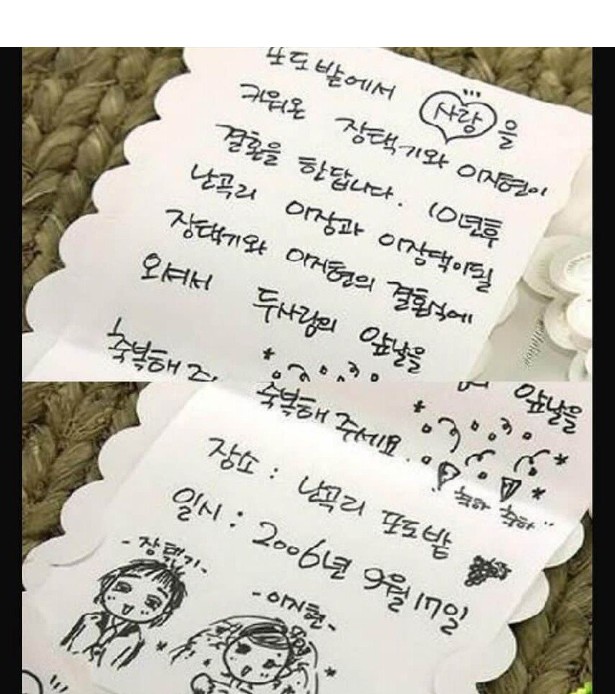 포도밭에서 사랑을
키워온 장택기와 이지현이
결혼을 한답니다. 10년후
난곡리 이장과 이장댁이될
장택기와 이지현의 결혼식에
오셔서 두사람의 앞날을
축복해 주
앞날을
축복해 주세요.
축하 축하
장소 : 난곡리 포도밭
일시 : 2006년 9월 17일
- 장택기 -
- 이지현 -